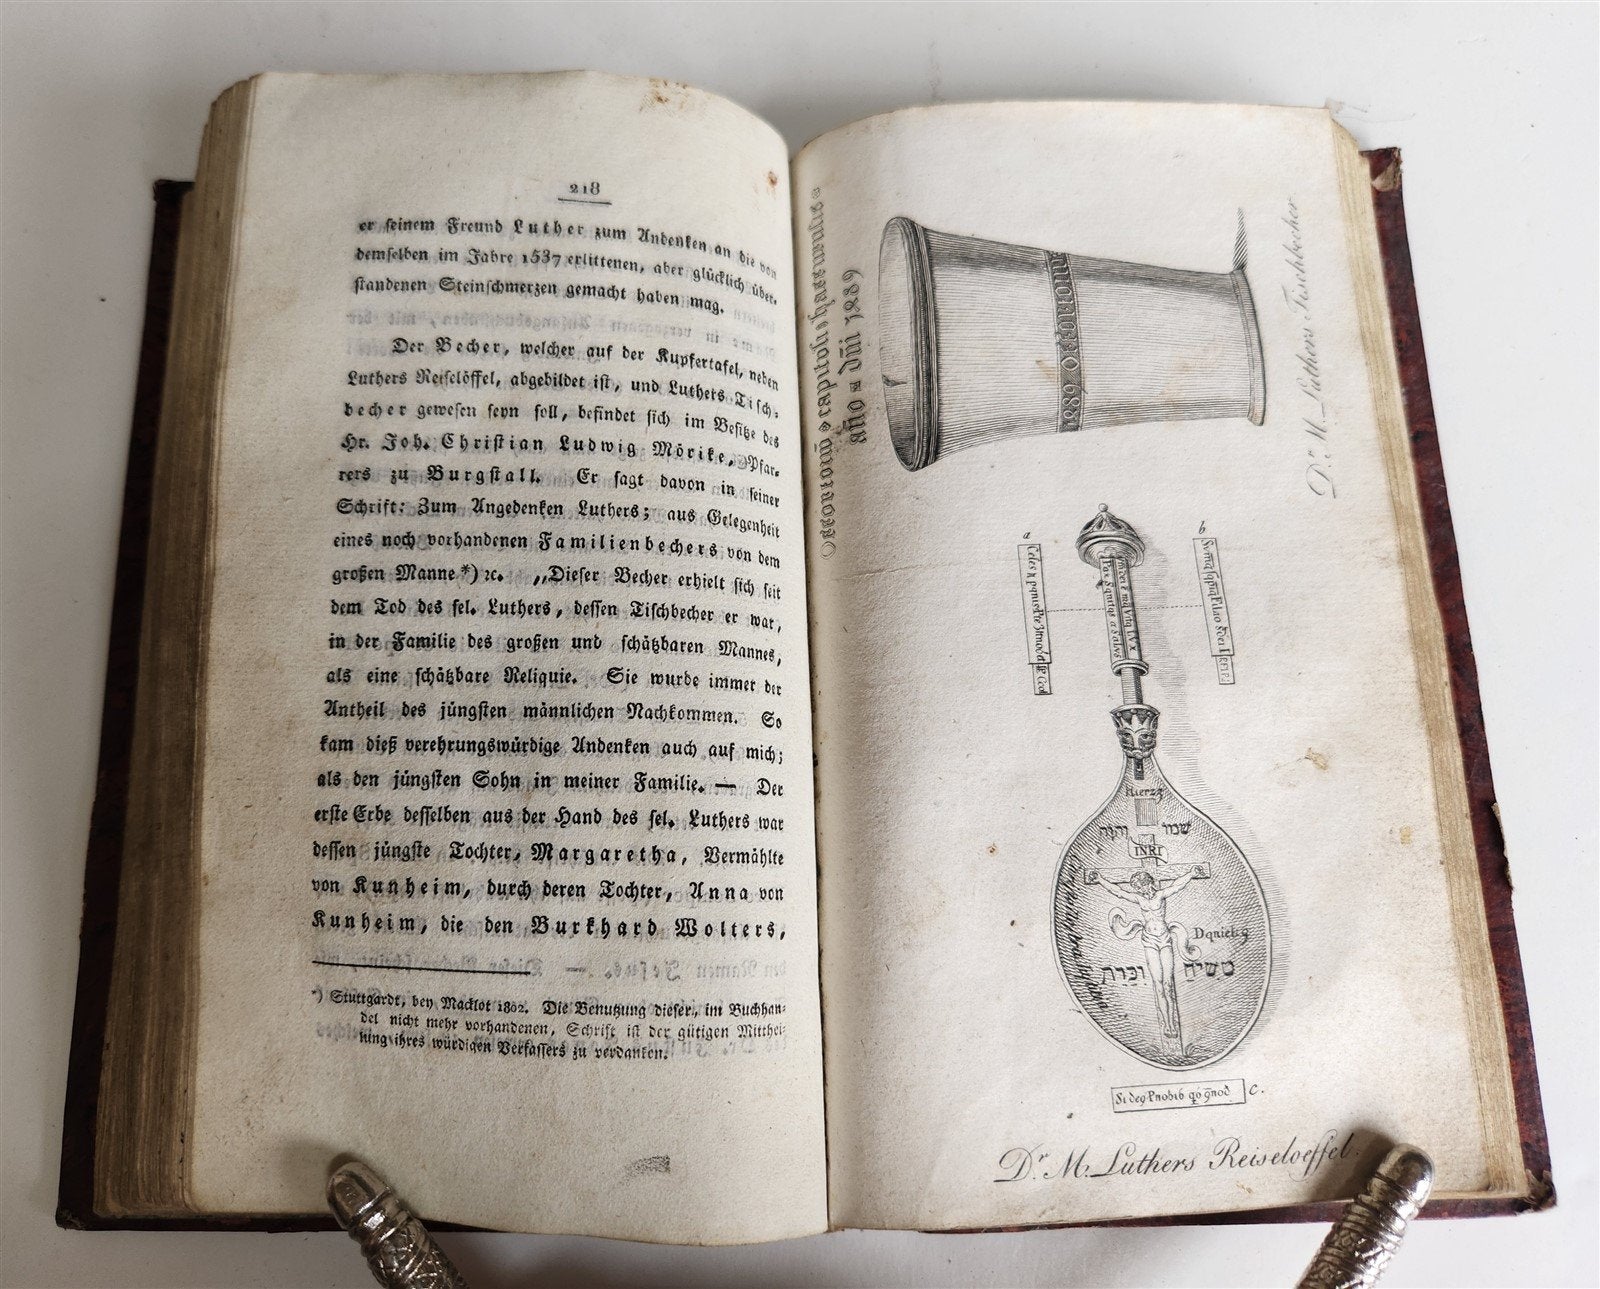 218
er ſeinem Freund Luther zum Andenken an die von
demſelben im Jahre 1537 erlittenen, aber glücklich über-
ſtandenen Steinſchmerzen gemacht haben mag.
Der Becher, welcher auf der Kupfertafel, neben
Luthers Reiſelöffel, abgebildet iſt, und Luthers Tiſch-
becher geweſen ſeyn ſoll, befindet ſich im Beſitze des
Hr. Joh. Chriſtian Ludwig Mörike, Pfar-
rers zu Burgſtall. Er ſagt davon in ſeiner
Schrift: Zum Angedenken Luthers; aus Gelegenheit
eines noch vorhandenen Familienbechers von dem
großen Manne *) ꝛc. „Dieſer Becher erhielt ſich ſeit
dem Tod des ſel. Luthers, deſſen Tiſchbecher er war,
in der Familie des großen und ſchätzbaren Mannes,
als eine ſchätzbare Reliquie. Sie wurde immer der
Antheil des jüngſten männlichen Nachkommen. So
kam dieß verehrungswürdige Andenken auch auf mich;
als den jüngſten Sohn in meiner Familie. — Der
erſte Erbe deſſelben aus der Hand des ſel. Luthers war
deſſen jüngſte Tochter, Margaretha, Vermählte
von Kunheim, durch deren Tochter, Anna von
Kunheim, die den Burkhard Wolters,
*) Stuttgardt, bey Macklot 1802. Die Benutzung dieſer, im Buchhan-
del nicht mehr vorhandenen, Schrift iſt der gütigen Mitthei-
lung ihres würdigen Verfaſſers zu verdanken.
Dr. M. Luthers Tischbecher
a
b
INRI
שמו יהוה
משיח יכרת
c.
Dr. M. Luthers Reiseloeffel.